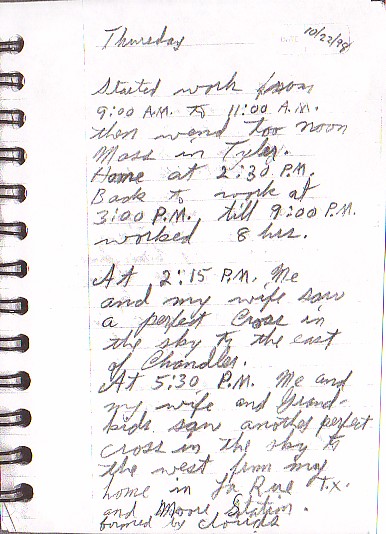 Thursday 10/22/98
Started work from
9:00 A.M. to 11:00 A.M.
then wend too noon
Mass in Tyler.
Home at 2:30 P.M.
Back to work at
3:00 P.M. till 9:00 P.M.
worked 8 hrs.
At 2:15 P.M. Me
and my wife saw
a perfect Cross in
the sky to the east
of Chandler.
At 5:30 P.M. Me and
my wife and Grand-
kids saw another perfect
cross in the sky to
the west from my
home in La Rue Tx.
and Moore Station.
formed by clouds